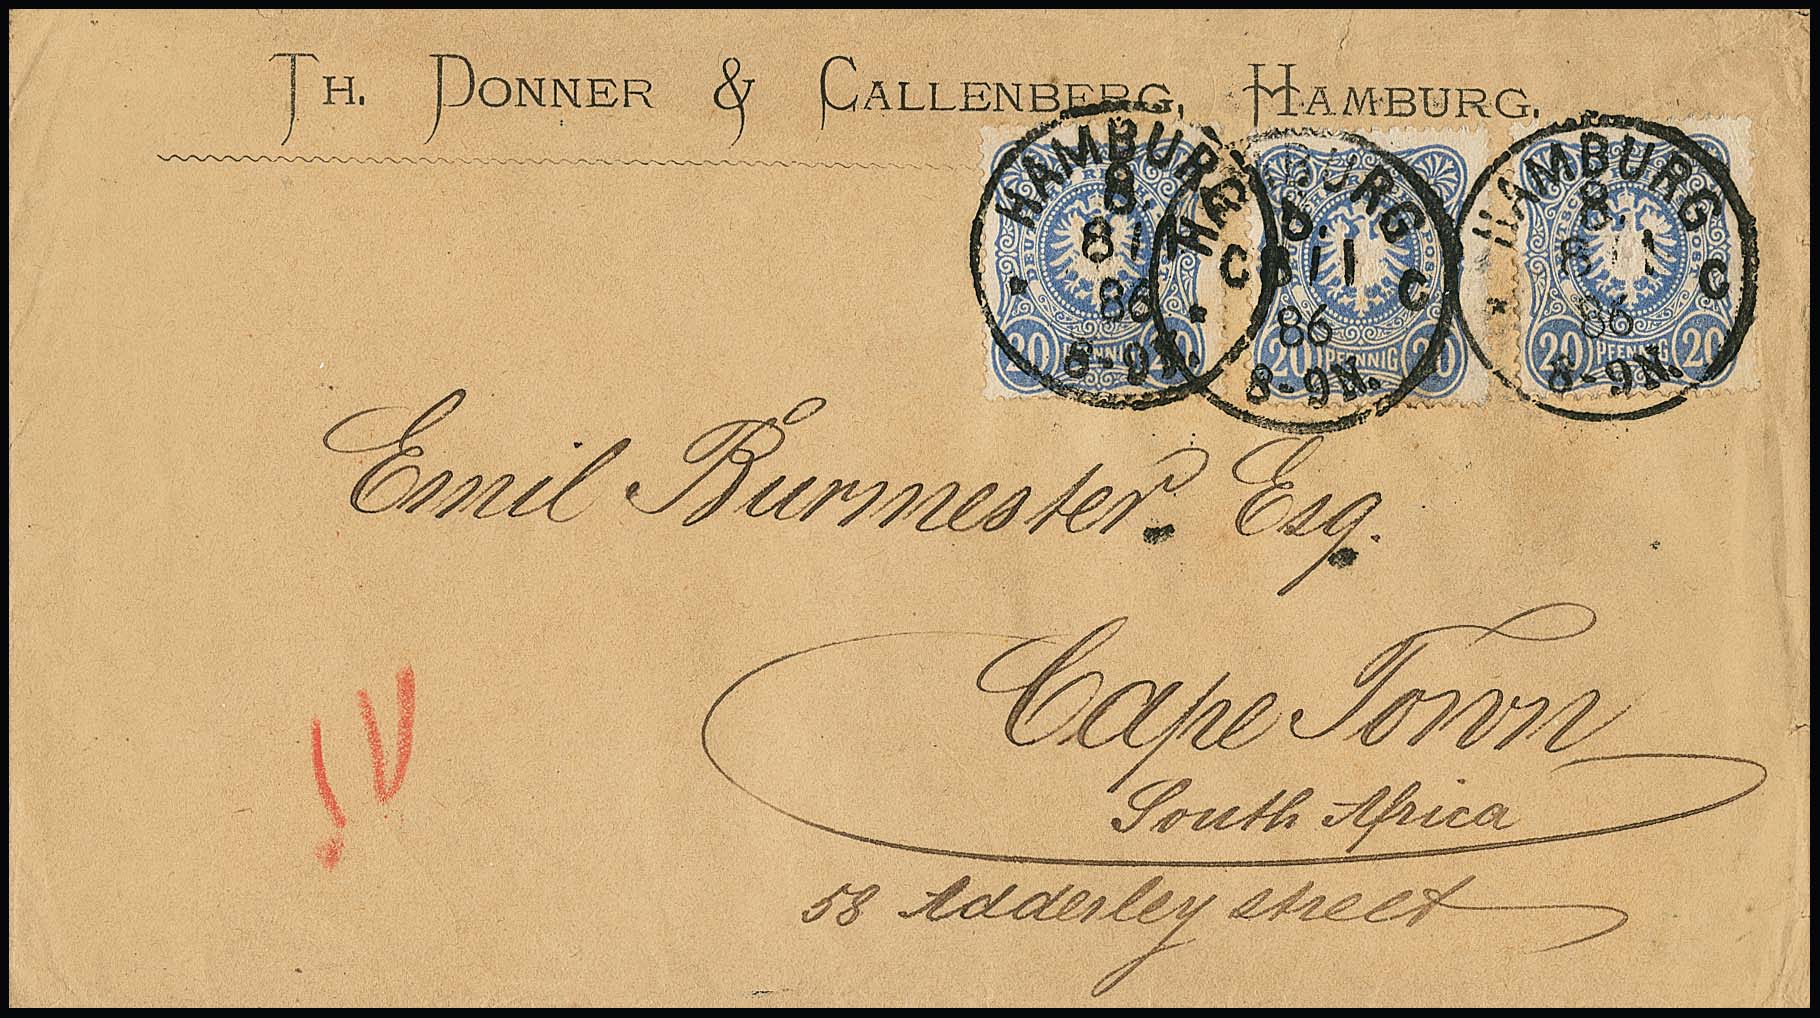 TH. DONNER & CALLENBERG, HAMBURG.
HAMBURG
8.
8 11
86
C
8-9N.
HAMBURG
8.
8 11
86
C
8-9N.
HAMBURG
8.
8 11
86
C
8-9N.
DEUTSCHE REICHS-POST
20 PFENNIG 20
20 PFENNIG 20
20 PFENNIG 20
Emil Burmester. Esq.
Cape Town
South Africa
58 Adderley street